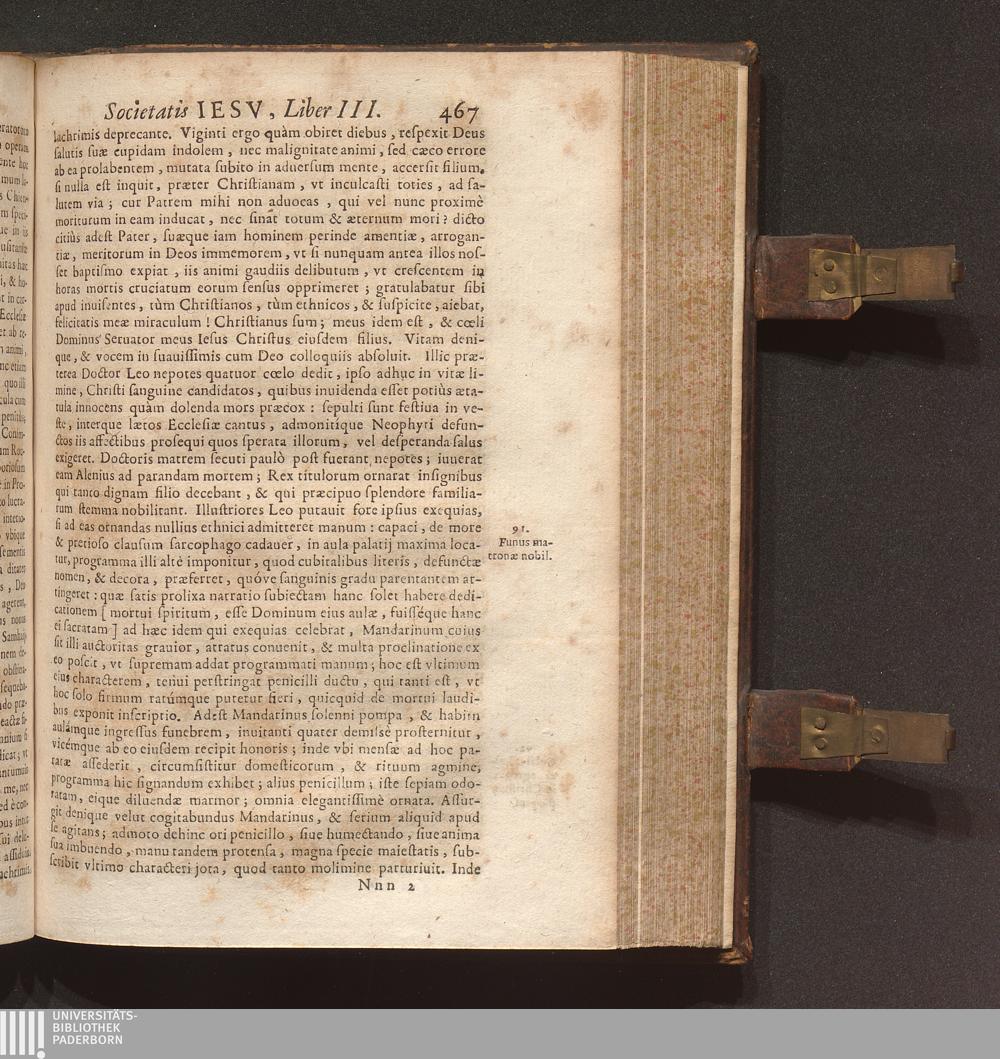 Societatis IESV, Liber III. 467
lachrimis deprecante. Viginti ergo quàm obiret diebus, respexit Deus
salutis suæ cupidam indolem, nec malignitate animi, sed cæco errore
ab ea prolabentem, mutata subito in aduersum mente, accersit filium.
si nulla est inquit, præter Christianam, vt inculcasti toties, ad sa-
lutem via; cur Patrem mihi non aduocas, qui vel nunc proximè
moriturum in eam inducat, nec sinat totum & æternum mori? dicto
citiùs adest Pater, suæque iam hominem perinde amentiæ, arrogan-
tiæ, meritorum in Deos immemorem, vt si nunquam antea illos nos-
set baptismo expiat, iis animi gaudiis delibutum, vt crescentem in
horas mortis cruciatum eorum sensus opprimeret; gratulabatur sibi
apud inuisentes, tùm Christianos, tùm ethnicos, & suspicite, aiebat,
felicitatis meæ miraculum! Christianus sum; meus idem est, & cœli
Dominus Seruator meus Iesus Christus eiusdem filius. Vitam deni-
que, & vocem in suauissimis cum Deo colloquiis absoluit. Illic præ-
terea Doctor Leo nepotes quatuor cœlo dedit, ipso adhuc in vitæ li-
mine, Christi sanguine candidatos, quibus inuidenda esset potiùs æta-
tula innocens quàm dolenda mors præcox: sepulti sunt festiua in ve-
ste, interque lætos Ecclesiæ cantus, admonitique Neophyti defun-
ctos iis affectibus prosequi quos sperata illorum, vel desperanda salus
exigeret. Doctoris matrem secuti paulò post fuerant nepotes; iuuerat
eam Alenius ad parandam mortem; Rex titulorum ornarat insignibus
qui tanto dignam filio decebant, & qui præcipuo splendore familia-
rum stemma nobilitant. Illustriores Leo putauit fore ipsius exequias,
si ad eas ornandas nullius ethnici admitteret manum: capaci, de more
& pretioso clausum sarcophago cadauer, in aula palatij maxima loca-
tur, programma illi altè imponitur, quod cubitalibus literis, defunctæ
nomen, & decora, præferret, quóve sanguinis gradu parentantem at-
tingeret: quæ satis prolixa narratio subiectam hanc solet habere dedi-
cationem [ mortui spiritum, esse Dominum eius aulæ, fuisséque hanc
ei sacratam ] ad hæc idem qui exequias celebrat, Mandarinum cuius
sit illi auctoritas grauior, atratus conuenit, & multa proclinatione ex
eo poscit, vt supremam addat programmati manum; hoc est vltimum
eius characterem, tenui perstringat penicilli ductu, qui tanti est, vt
hoc solo firmum ratúmque putetur fieri, quicquid de mortui laudi-
bus exponit inscriptio. Adest Mandarinus solenni pompa, & habitu
aulámque ingressus funebrem, inuitanti quater demissè prosternitur,
vicémque ab eo eiusdem recipit honoris; inde vbi mensæ ad hoc pa-
ratæ assederit, circumsistitur domesticorum, & rituum agmine;
programma hic signandum exhibet; alius penicillum; iste sepiam odo-
ratam, eique diluendæ marmor; omnia elegantissimè ornata. Assur-
git denique velut cogitabundus Mandarinus, & serium aliquid apud
se agitans; admoto dehinc ori penicillo, siue humectando, siue anima
sua imbuendo, manu tandem protensa, magna specie maiestatis, sub-
scribit vltimo characteri jota, quod tanto molimine parturiuit. Inde
Nnn 2
91.
Funus ma-
tronæ nobil.
UNIVERSITÄTS-
BIBLIOTHEK
PADERBORN